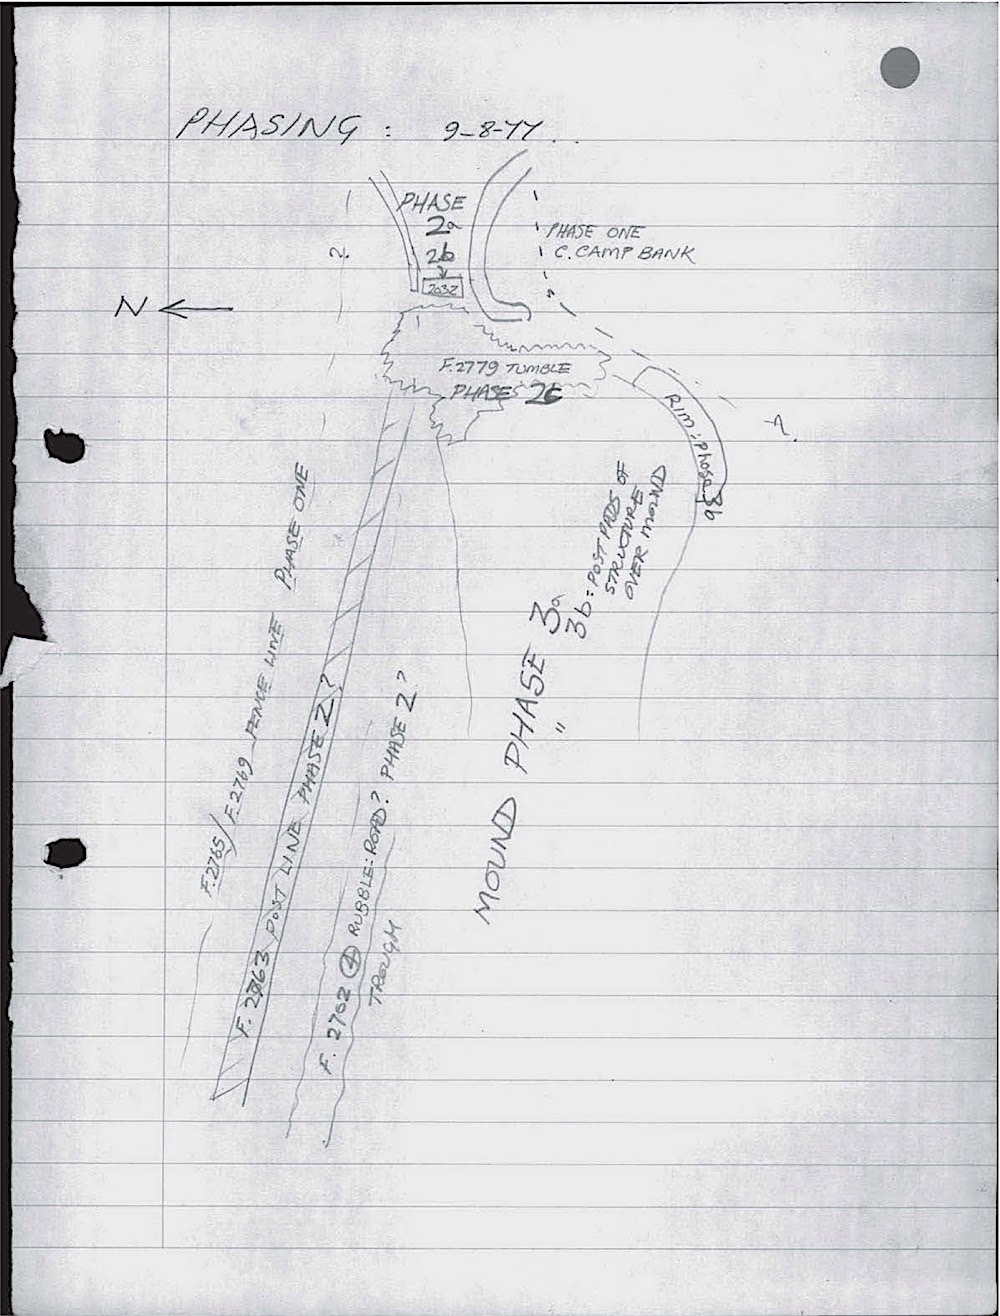 PHASING : 9-8-77 . .
PHASE
2a
2b
2032
PHASE ONE
C. CAMP BANK
?
N
F.2779 TUMBLE
PHASE 2c
RIM : phase 3b
?
3b : POST PADS OF
STRUCTURE
OVER MOUND
MOUND PHASE 3a
" 3b
F.2765/F.2769 FENCE LINE PHASE ONE
F. 2763 POST LINE PHASE 2?
F. 2702 4 RUBBLE : ROAD? PHASE 2?
TROUGH